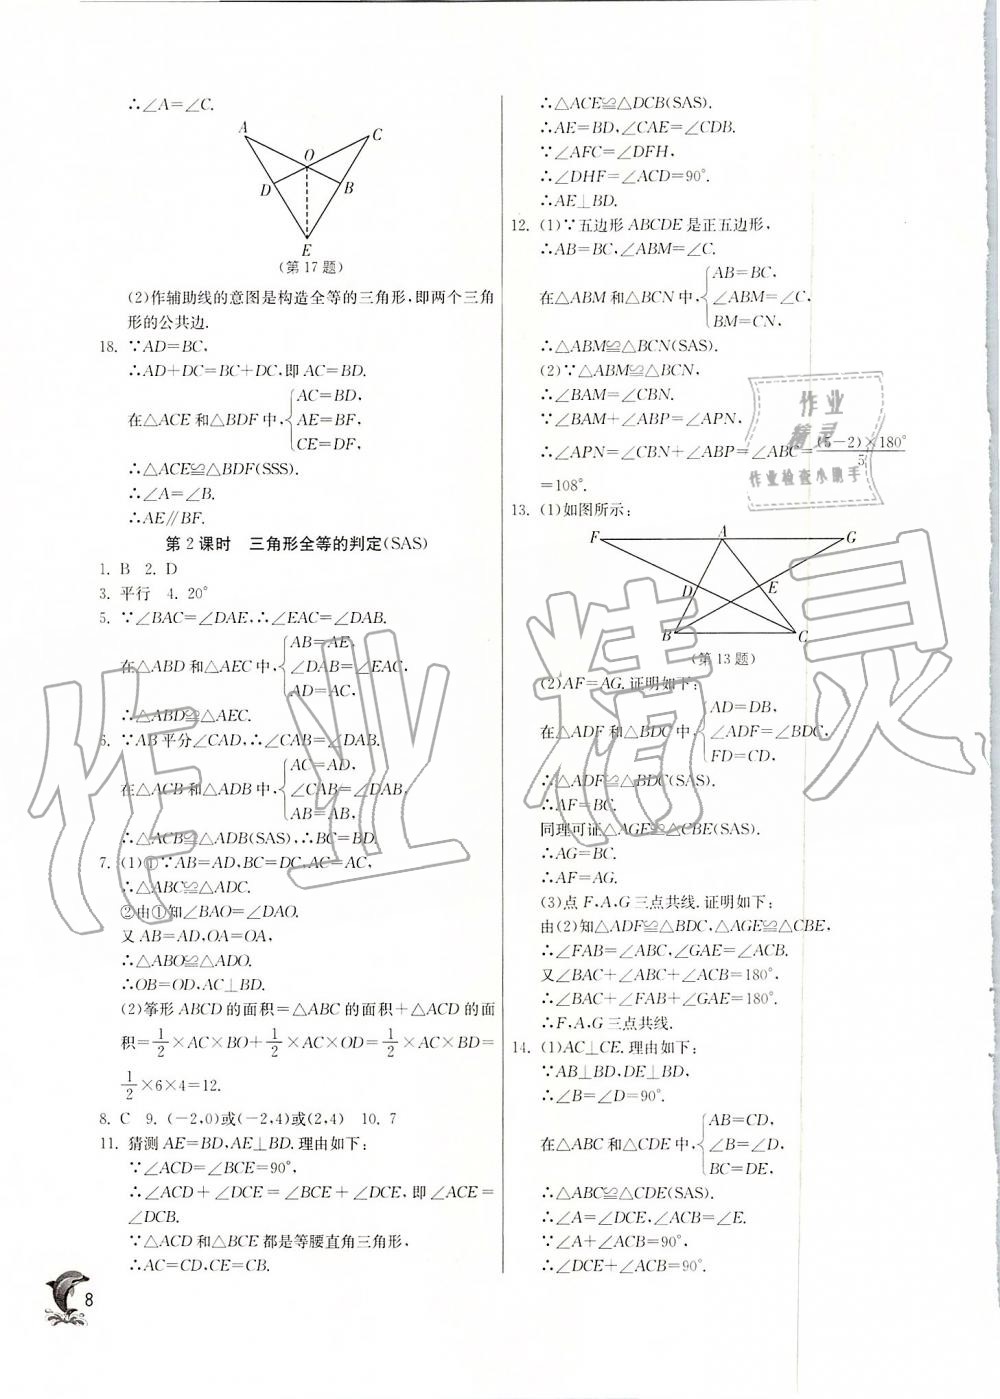 ∴∠A=∠C.
A
C
O
D
B
E
(第 17 题)
(2)作辅助线的意图是构造全等的三角形,即两个三角
形的公共边.
18. ∵AD=BC,
∴AD+DC=BC+DC,即 AC=BD.
在△ACE 和△BDF 中,{AC=BD,
AE=BF,
CE=DF,
∴△ACE≌△BDF(SSS).
∴∠A=∠B.
∴AE∥BF.
第 2 课时 三角形全等的判定(SAS)
1. B 2. D
3. 平行 4. 20°
5. ∵∠BAC=∠DAE,∴∠EAC=∠DAB.
在△ABD 和△AEC 中,{AB=AE,
∠DAB=∠EAC,
AD=AC,
∴△ABD≌△AEC.
6. ∵AB 平分∠CAD,∴∠CAB=∠DAB.
在△ACB 和△ADB 中,{AC=AD,
∠CAB=∠DAB,
AB=AB,
∴△ACB≌△ADB(SAS),∴BC=BD.
7. (1)①∵AB=AD,BC=DC,AC=AC,
∴△ABC≌△ADC.
②由①知∠BAO=∠DAO.
又 AB=AD,OA=OA,
∴△ABO≌△ADO.
∴OB=OD,AC⊥BD.
(2)筝形 ABCD 的面积=△ABC 的面积+△ACD 的面
积=1/2×AC×BO+1/2×AC×OD=1/2×AC×BD=
1/2×6×4=12.
8. C 9. (-2,0)或(-2,4)或(2,4) 10. 7
11. 猜测 AE=BD,AE⊥BD. 理由如下:
∵∠ACD=∠BCE=90°,
∴∠ACD+∠DCE=∠BCE+∠DCE,即∠ACE=
∠DCB.
∵△ACD 和△BCE 都是等腰直角三角形,
∴AC=CD,CE=CB.
8
∴△ACE≌△DCB(SAS).
∴AE=BD,∠CAE=∠CDB.
∵∠AFC=∠DFH,
∴∠DHF=∠ACD=90°.
∴AE⊥BD.
12. (1)∵五边形 ABCDE 是正五边形,
∴AB=BC,∠ABM=∠C.
在△ABM 和△BCN 中,{AB=BC,
∠ABM=∠C,
BM=CN,
∴△ABM≌△BCN(SAS).
(2)∵△ABM≌△BCN,
∴∠BAM=∠CBN.
∵∠BAM+∠ABP=∠APN,
∴∠APN=∠CBN+∠ABP=∠ABC=(5-2)×180°/5
=108°.
13. (1)如图所示:
F
A
G
D
E
B
C
(第 13 题)
(2)AF=AG. 证明如下:
在△ADF 和△BDC 中,{AD=DB,
∠ADF=∠BDC,
FD=CD,
∴△ADF≌△BDC(SAS).
∴AF=BC.
同理可证△AGE≌△CBE(SAS).
∴AG=BC.
∴AF=AG.
(3)点 F,A,G 三点共线. 证明如下:
由(2)知△ADF≌△BDC,△AGE≌△CBE,
∴∠FAB=∠ABC,∠GAE=∠ACB.
又∠BAC+∠ABC+∠ACB=180°,
∴∠BAC+∠FAB+∠GAE=180°.
∴F,A,G 三点共线.
14. (1)AC⊥CE. 理由如下:
∵AB⊥BD,DE⊥BD,
∴∠B=∠D=90°.
在△ABC 和△CDE 中,{AB=CD,
∠B=∠D,
BC=DE,
∴△ABC≌△CDE(SAS).
∴∠A=∠DCE,∠ACB=∠E.
∵∠A+∠ACB=90°,
∴∠DCE+∠ACB=90°.
作业
精灵
作业检查小助手
作业精灵